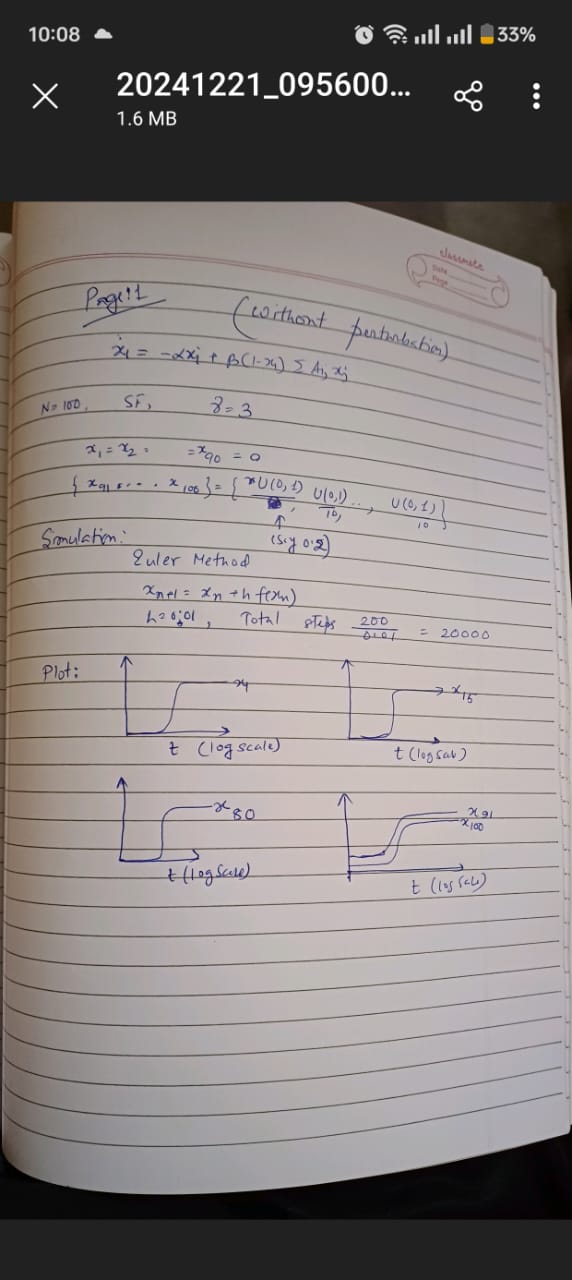 10:08
33%
20241221_095600...
1.6 MB
classmate
Date
Page
Page:1
(without perturbation)
ẋi = -αxi + β(1-xi) Σ Aij xj
N=100, SF, γ=3
x1 = x2 = = x90 = 0
{ x91, . . . . x100 } = { *U(0,1) , U(0,1)/10, . . , U(0,1)/10 }
↑
(say 0.2)
Simulation:
Euler Method
xn+1 = xn + h f(xn)
h=0.01, Total steps 200/0.01 = 20000
Plot:
x4
t (log scale)
x15
t (log scale)
x80
t (log scale)
x91
x100
t (log scale)